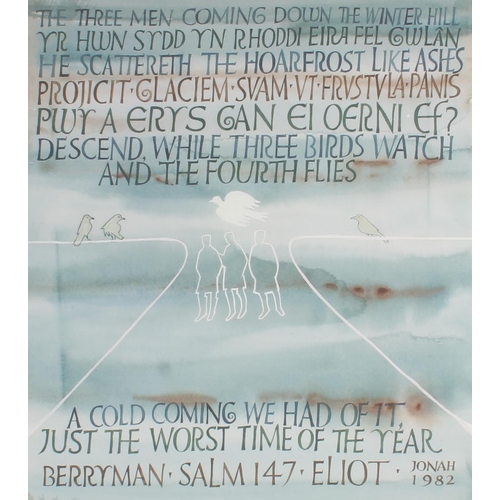 THE THREE MEN COMING DOWN THE WINTER HILL
YR HWN SYDD YN RHODDI EIRA FEL GWLÂN
HE SCATTERETH THE HOARFROST LIKE ASHES
PROJICIT · GLACIEM · SVAM · VT · FRVSTVLA · PANIS
PWY A ERYS GAN EI OERNI EF?
DESCEND, WHILE THREE BIRDS WATCH
AND THE FOURTH FLIES
A COLD COMING WE HAD OF IT,
JUST THE WORST TIME OF THE YEAR
BERRYMAN · SALM 147 · ELIOT · JONAH
1982